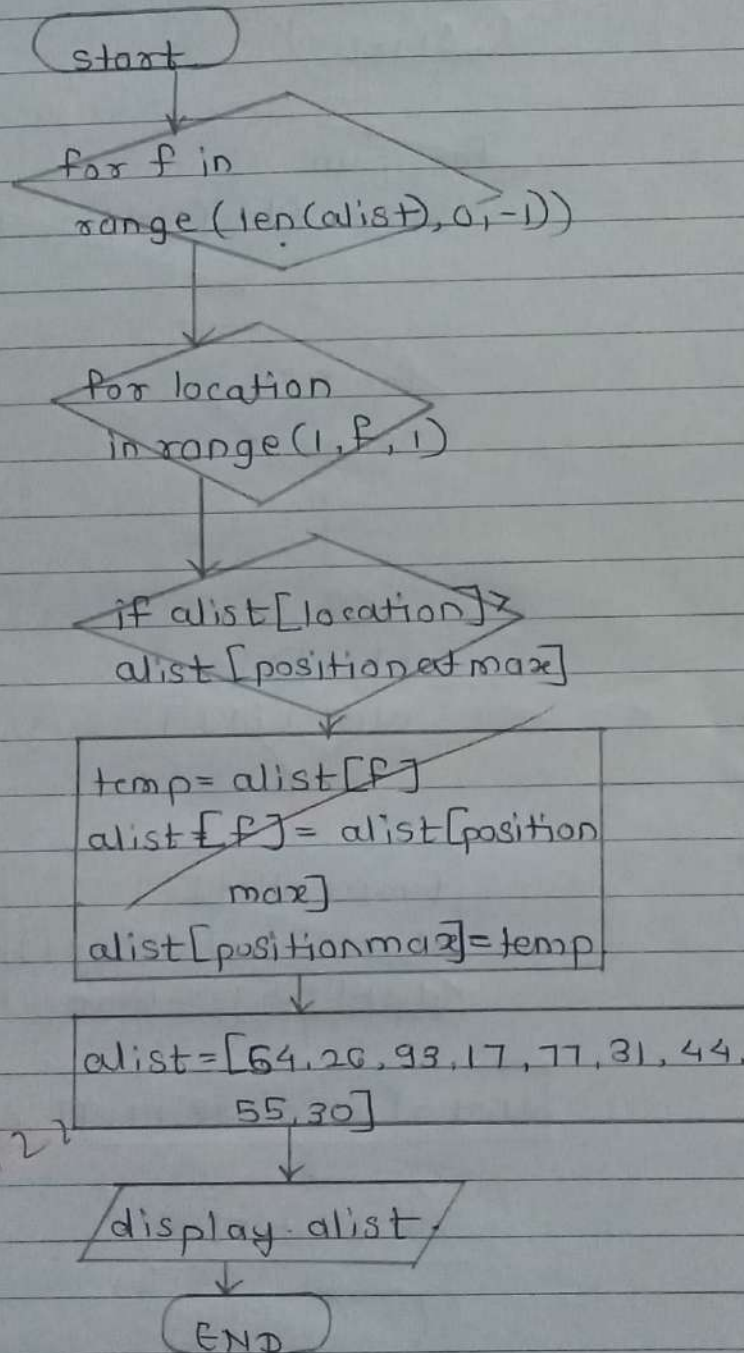 start
for f in
range (len(alist), 0, -1))
for location
in range (1, f, 1)
if alist [location] >
alist [positionedmax]
temp = alist [f]
alist [f] = alist [position
max]
alist [positionmax] = temp
alist = [54, 26, 93, 17, 77, 31, 44,
55, 30]
display alist
END